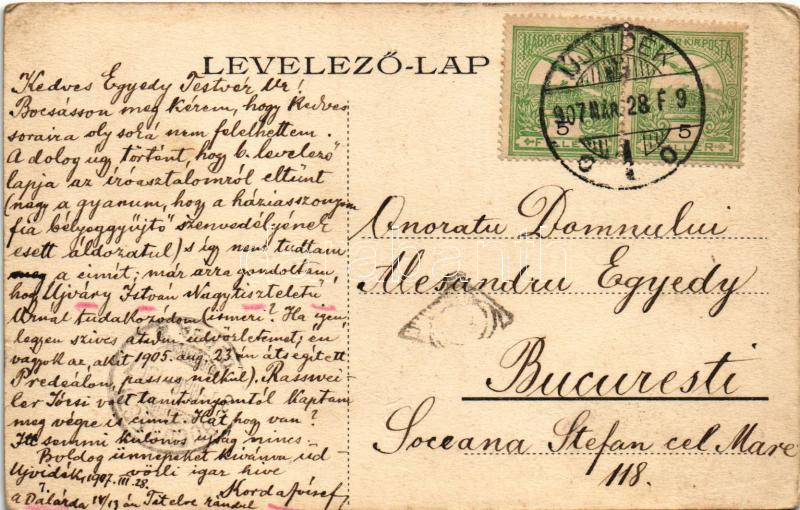 LEVELEZŐ-LAP
MAGYAR KIR. POSTA
UJVIDÉK
907 MÁR. 28 F 9
5 5
FILLÉR FILLÉR
Kedves Egyedy Testvér Ur!
Bocsásson meg kérem, hogy kedves
soraira oly soká nem felelhettem.
A dolog úgy történt, hogy b. levelező
lapja az íróasztalomról eltünt
(nagy a gyanum, hogy a háziasszonyom
fia bélyeggyüjtő szenvedélyének
esett áldozatul) s így nem tudtam
meg a cimét; már arra gondoltam,
hogy Ujváry István Nagytiszteletű
Urnál tudakozódom (ismeri? Ha igen,
legyen szives átadni üdvözletemet; én
vagyok az, akit 1905. aug. 23-án átsegített
Predeálon, passus nélkül). Rasswei-
ler Józsi volt tanítványomtól kaptam
meg végre is cimét. Hát hogy van?
Itt semmi különös ujság nincs.-
Boldog ünnepeket kívánva üd-
vözli igaz hive
Ujvidék, 1907. III. 28.
Korda József
a Dalárda IV/13 án Titelre rándul
Onoratu Domnului
Alesandru Egyedy
Bucuresti
Soceana Stefan cel Mare
118.
darabanth